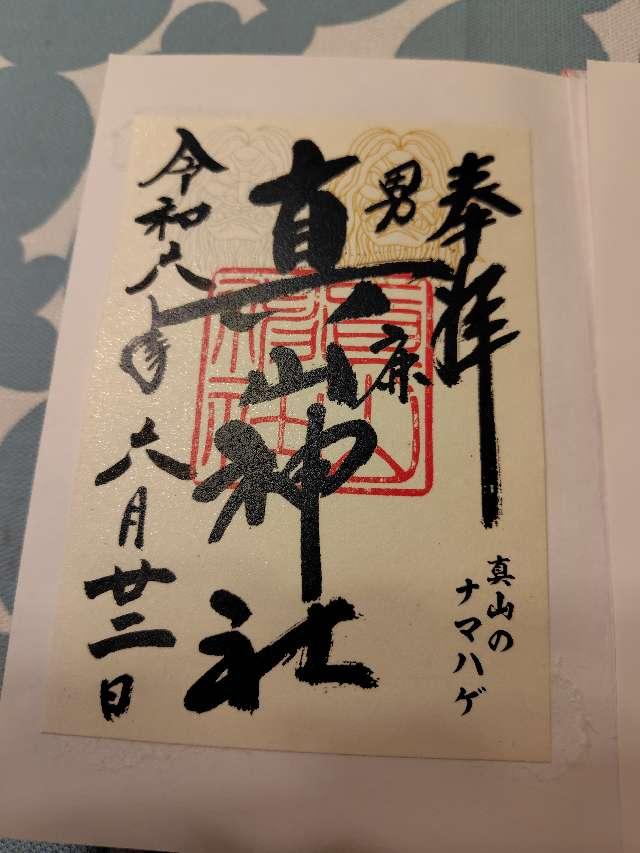 奉拝
真山の
ナマハゲ
男鹿
真山神社
令和六年六月廿二日